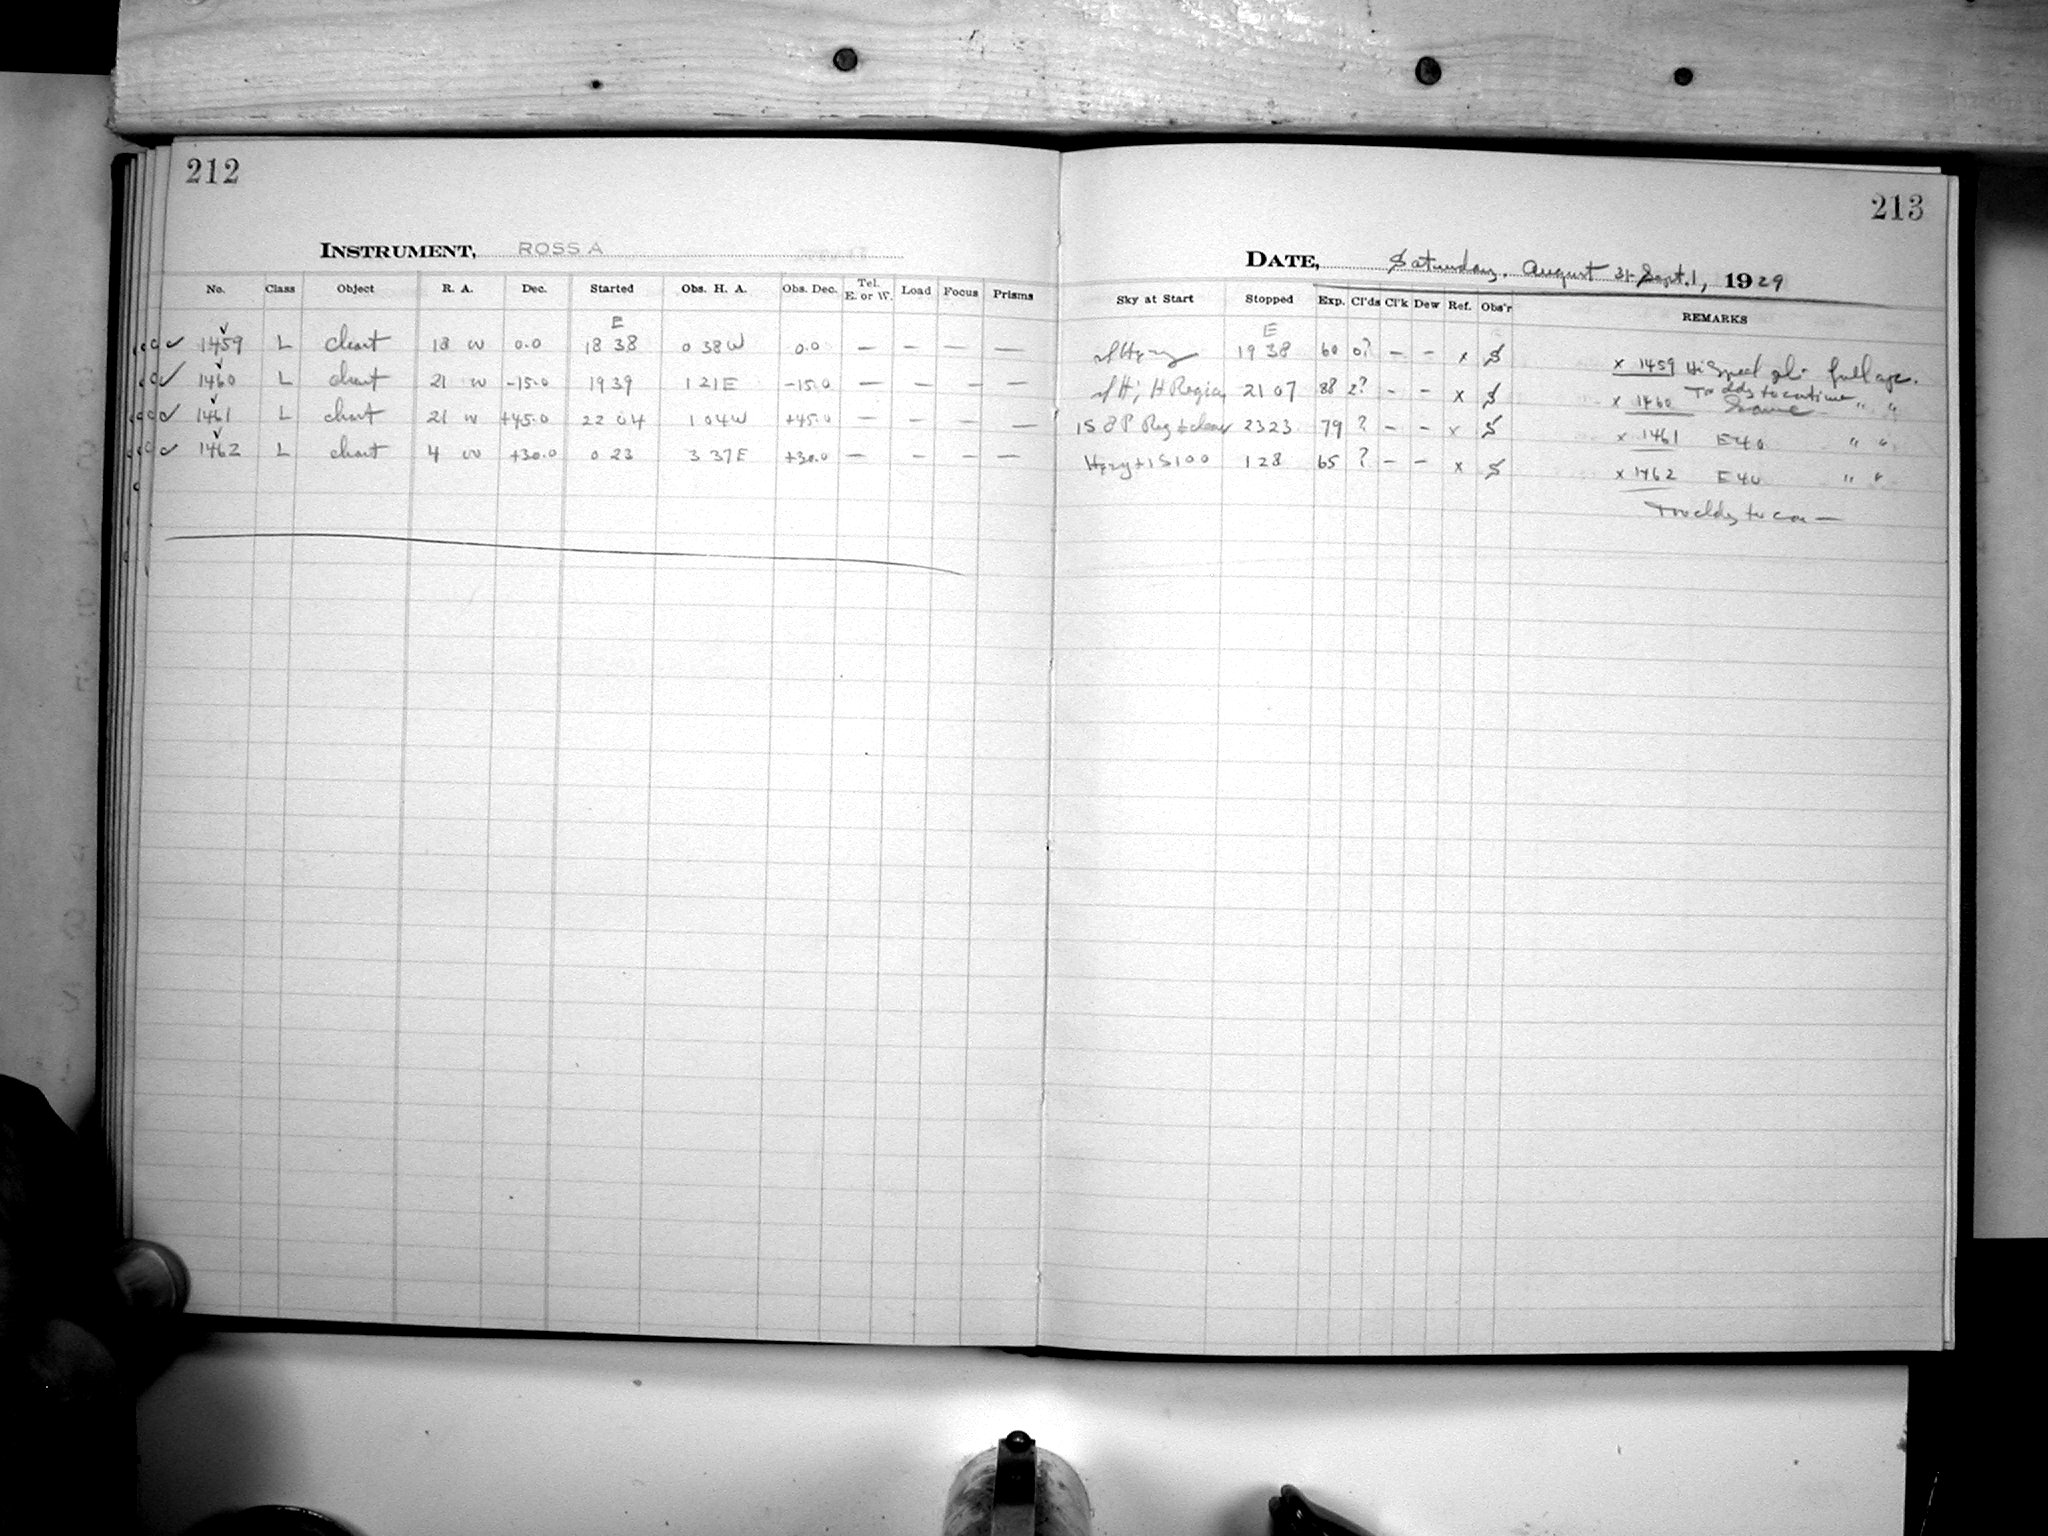 212
INSTRUMENT, ROSS A
No. Class Object R. A. Dec. Started Obs. H. A. Obs. Dec. Tel. E. or W. Load Focus Prisms
E
✓ 1459 L chart 18 w 0.0 18 38 0 38 W 0.0 — — — —
✓ 1460 L chart 21 w -15.0 19 39 1 21 E -15.0 — — — —
✓ 1461 L chart 21 w +45.0 22 04 1 04 W +45.0 — — — —
✓ 1462 L chart 4 w +30.0 0 23 3 37 E +30.0 — — — —
213
DATE, Saturday, August 31-Sept. 1, 1929
Sky at Start Stopped Exp. Cl'ds Cl'k Dew Ref. Obs'r REMARKS
E
Hazy 19 38 60 0? — — x x 1459 full ape.
21 07 88 2? — — x Too cldy to continue
x 1460 Same " "
clear 23 23 79 ? — — x x 1461 E40 " "
Hazy + 15 100 1 28 65 ? — — x x 1462 E40 " "
Too cldy to con —